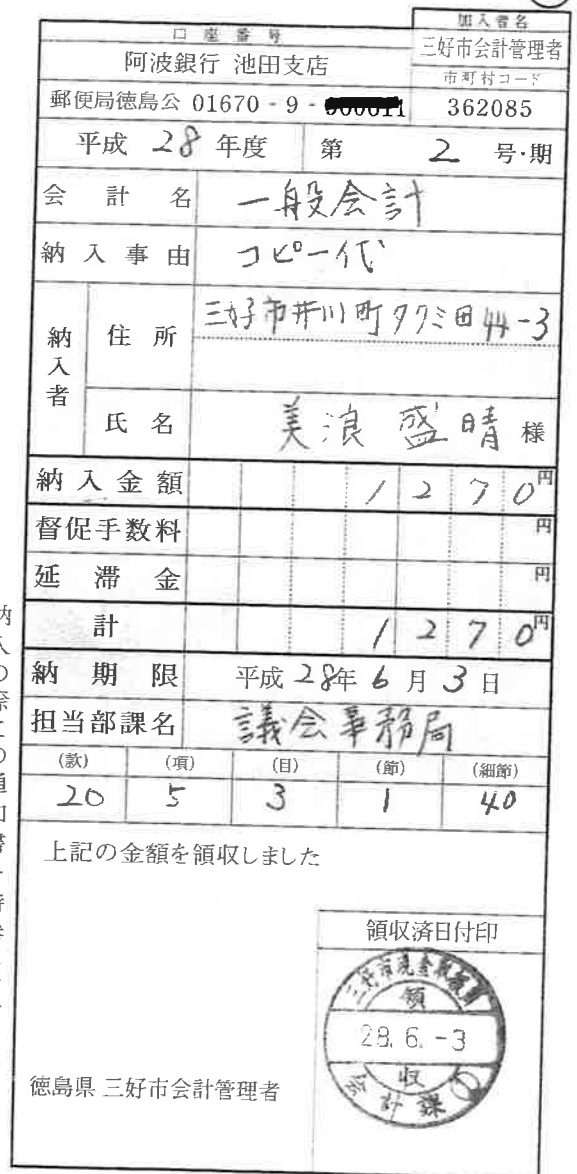 口座番号
加入者名
阿波銀行 池田支店
三好市会計管理者
市町村コード
郵便局徳島公 01670 - 9 -
362085
平成 28 年度 第 2 号・期
会計名 一般会計
納入事由 コピー代
納入者
住所 三好市井川町タクミ田44-3
氏名 美浪盛晴 様
納入金額 1270円
督促手数料 円
延滞金 円
計 1270円
納期限 平成28年6月3日
担当部課名 議会事務局
(款) (項) (目) (節) (細節)
20 5 3 1 40
上記の金額を領収しました
領収済日付印
三好市現金取扱員
領
28.6.-3
収
会計課
徳島県 三好市会計管理者